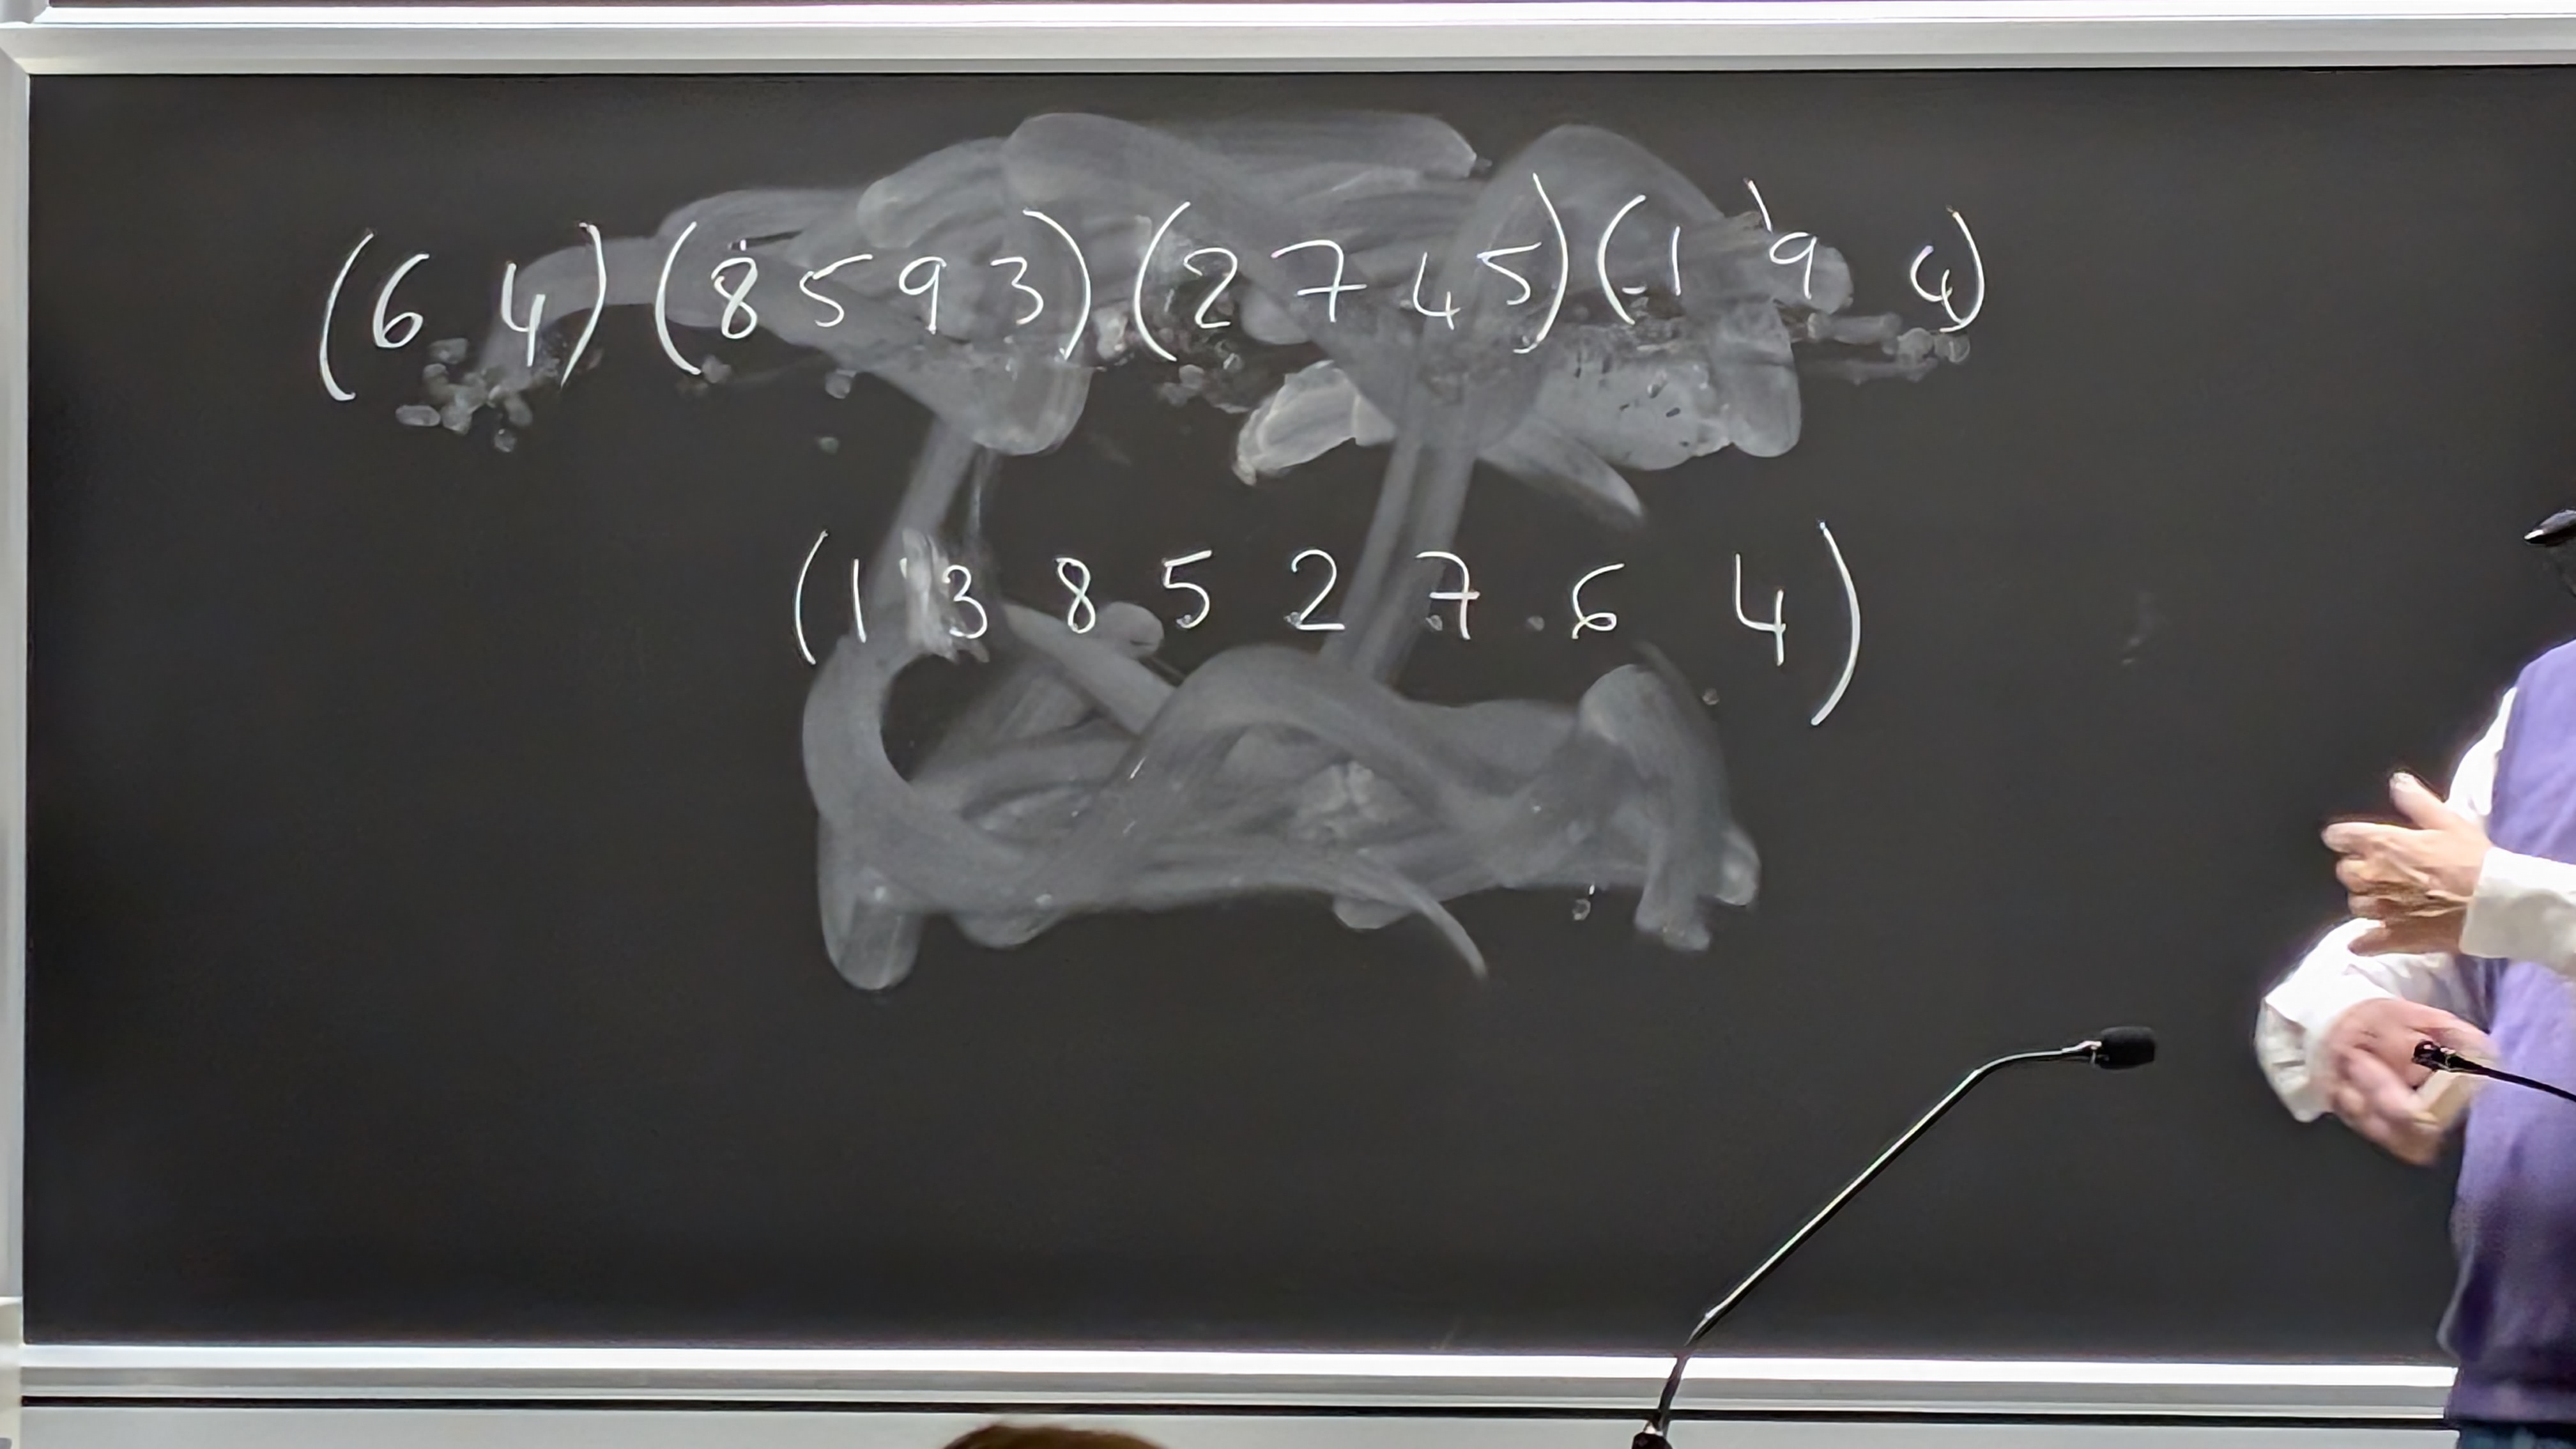 (6 4) (8 5 9 3) (2 7 4 5) (1 9 4)
(1 3 8 5 2 7 6 4)